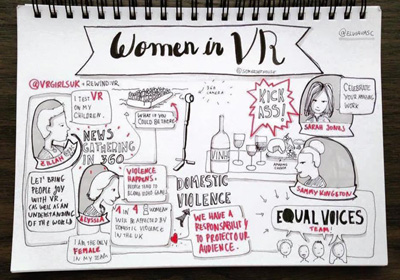 Women in VR
@VRGIRLSUK + REWIND:VR
I TEST
VR
ON MY
CHILDREN.
NEWS
GATHERING
IN 360
LET'S BRING
PEOPLE JOY
WITH VR,
AS WELL AS AN
UNDERSTANDING
OF THE WORLD
ALYSSIA
I AM THE ONLY
FEMALE
IN MY TEAM
WHAT IF YOU
COULD BE THERE?
VIOLENCE
HAPPENS.
PEOPLE TEND TO
1 IN 4 WOMEN
WILL BE AFFECTED BY
DOMESTIC VIOLENCE
IN THE UK
360
CAMERA
DOMESTIC
VIOLENCE
WE HAVE A
RESPONSIBILITY
TO PROTECT OUR
AUDIENCE.
VINO
KICK
ASS!
CELEBRATE
YOUR AMAZING
WORK
SARAH JONES
SAMMY KINGSTON
EQUAL VOICES
TEAM!